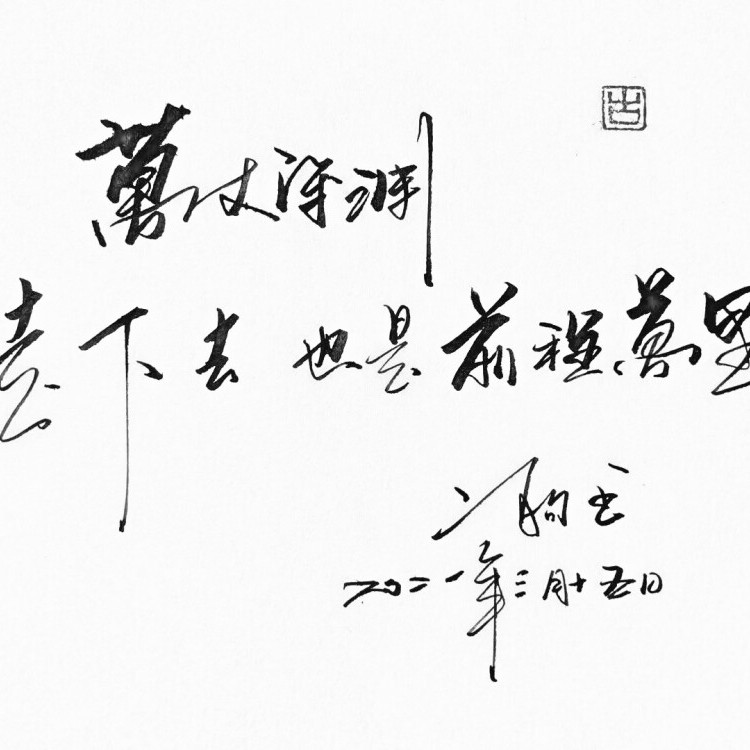 萬丈深渊
走下去 也是前程萬里
书
二〇二一年三月十五日